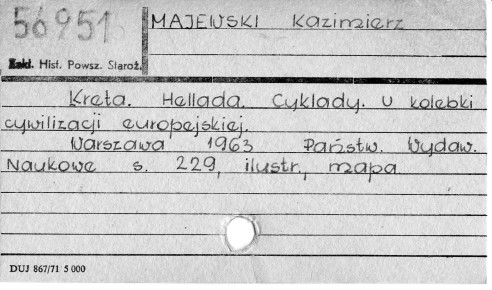 56951
MAJEWSKI Kazimierz
Zakł. Hist. Powsz. Staroż.
Kreta. Hellada. Cyklady. U kolebki
cywilizacji europejskiej.
Warszawa 1963 Państw. Wydaw.
Naukowe s. 229, ilustr., mapa
DUJ 867/71 5 000